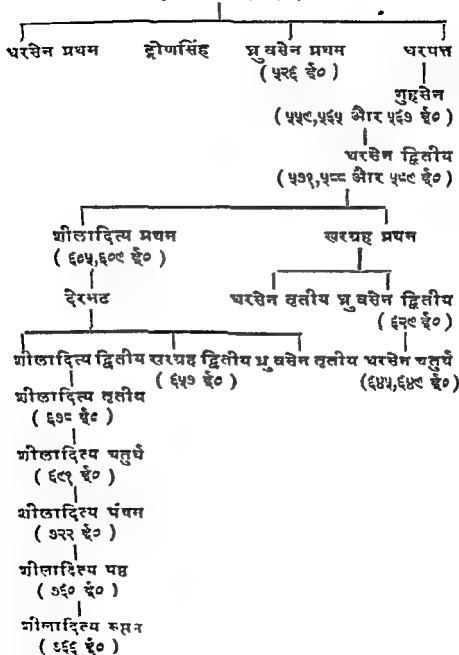 धरसेन प्रथम द्रोणसिंह ध्रुवसेन प्रथम धरपत्त
(५२६ ई०)
गुहसेन
(५५९,५६५ और ५६७ ई०)
धरसेन द्वितीय
(५७१,५८८ और ५८९ ई०)
शीलादित्य प्रथम खरग्रह प्रथम
(६०५,६०९ ई०)
देरभट धरसेन तृतीय ध्रुवसेन द्वितीय
(६२९ ई०)
शीलादित्य द्वितीय खरग्रह द्वितीय ध्रुवसेन तृतीय धरसेन चतुर्थ
(६५७ ई०) (६४५,६४९ ई०)
शीलादित्य तृतीय
(६७८ ई०)
शीलादित्य चतुर्थ
(६९१ ई०)
शीलादित्य पंचम
(७२२ ई०)
शीलादित्य षष्ठ
(७६० ई०)
शीलादित्य सप्तम
(ई०)